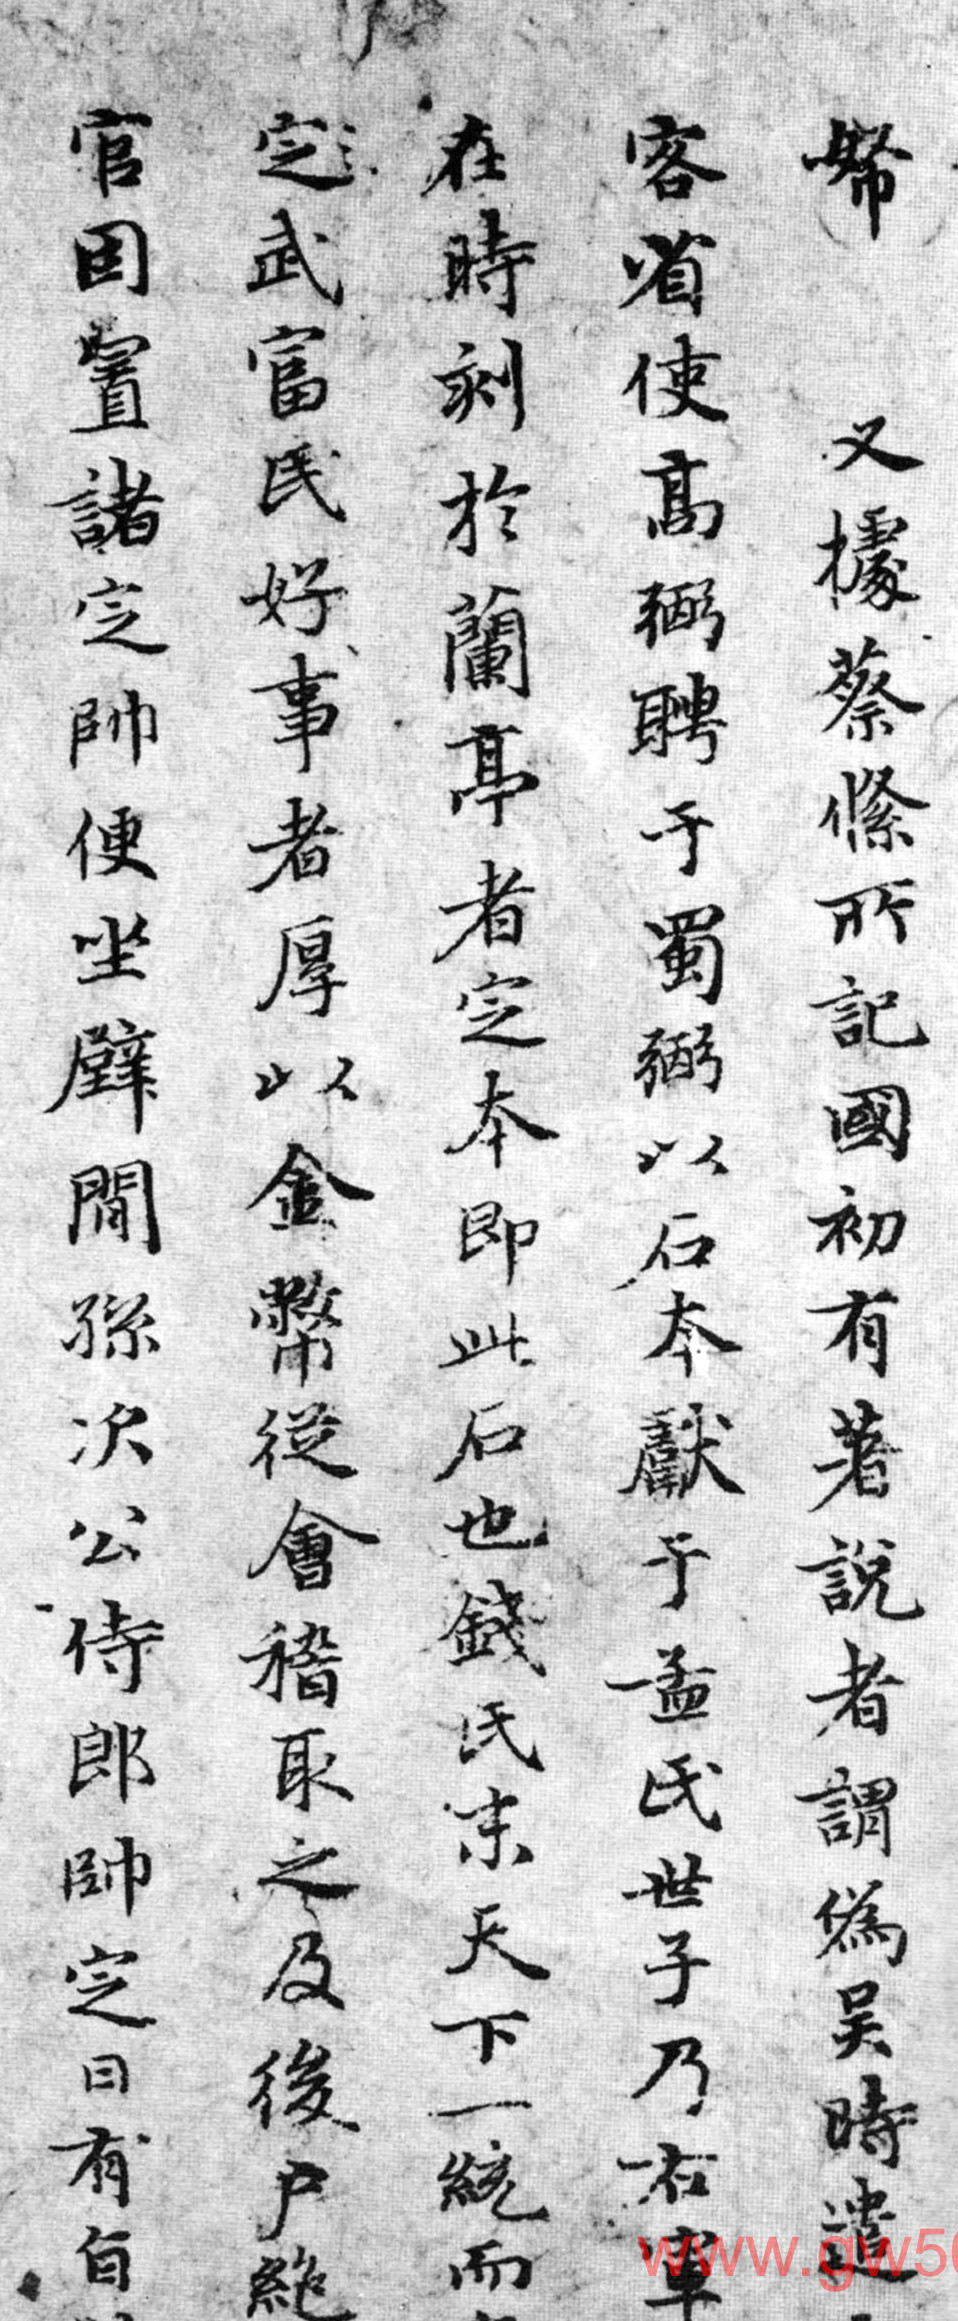 又據蔡絛所記國初有著說者謂偽吳時遣
客省使高弼聘于蜀弼以石本獻于孟氏世子乃右軍
在時刻於蘭亭者定本即此石也錢氏末天下一統而
定武富民好事者厚以金幣從會稽取之及後戶絕
官因置諸定帥便坐壁間孫次公侍郎帥定日有旨
www.gw50